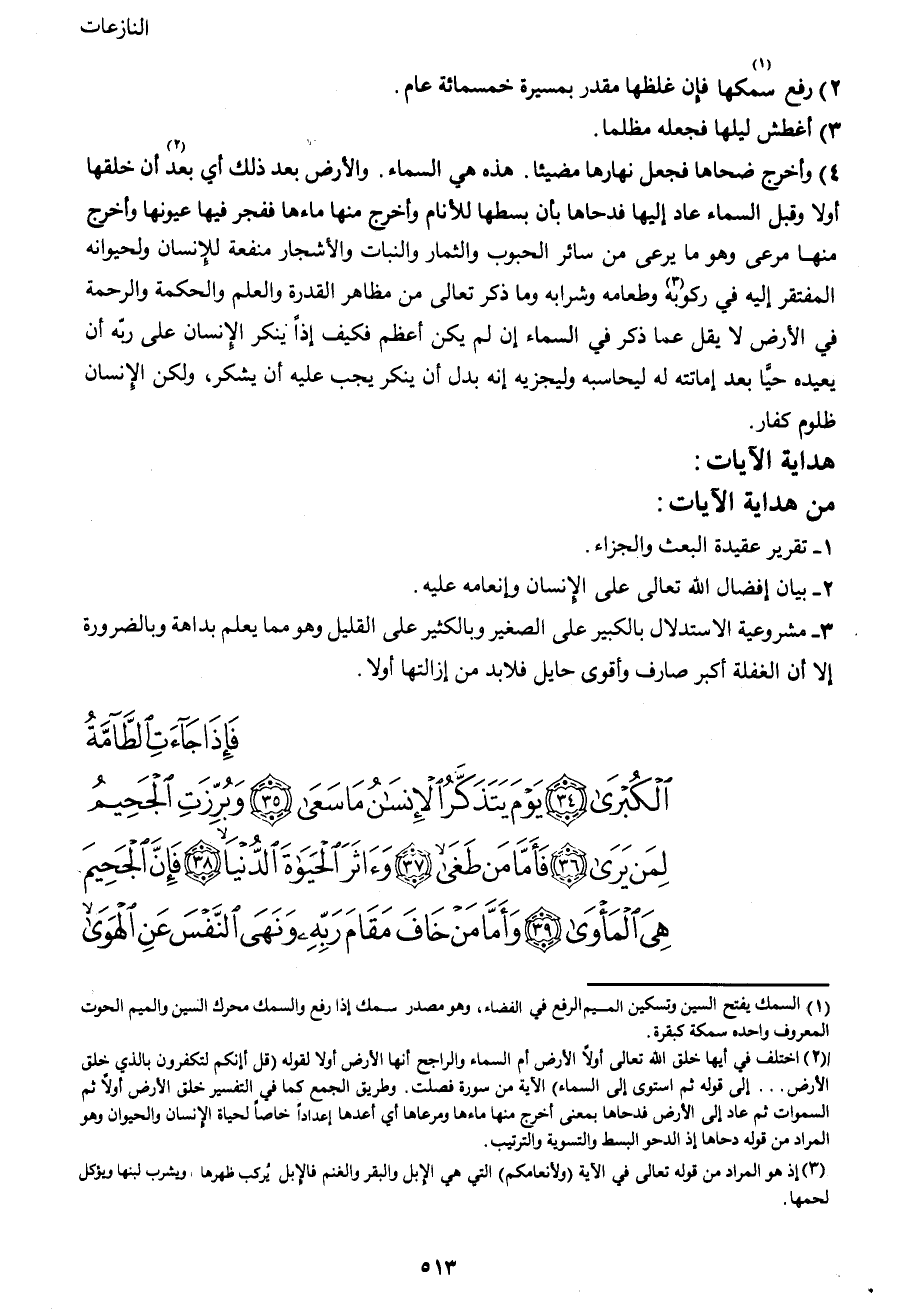 النازعات
٢) رفع سمكها (١) فإن غلظها مقدر بمسيرة خمسمائة عام .
٣) أغطش ليلها فجعله مظلما.
٤) وأخرج ضحاها فجعل نهارها مضيئا. هذه هي السماء. والأرض بعد ذلك (٢) أي بعد أن خلقها
أولا وقبل السماء عاد إليها فدحاها بأن بسطها للأنام وأخرج منها ماءها ففجر فيها عيونها وأخرج
منهـا مرعى وهو ما يرعى من سائر الحبوب والثمار والنبات والأشجار منفعة للإنسان ولحيوانه
المفتقر إليه في ركوبه (٣) وطعامه وشرابه وما ذكر تعالى من مظاهر القدرة والعلم والحكمة والرحمة
في الأرض لا يقل عما ذكر في السماء إن لم يكن أعظم فكيف إذاً ينكر الإنسان على ربّه أن
يعيده حيًّا بعد إماتته له ليحاسبه وليجزيه إنه بدل أن ينكر يجب عليه أن يشكر، ولكن الإنسان
ظلوم كفار.
هداية الآيات :
من هداية الآيات :
١ـ تقرير عقيدة البعث والجزاء .
٢ـ بيان إفضال الله تعالى على الإنسان وإنعامه عليه .
٣ـ مشروعية الاستدلال بالكبير على الصغير وبالكثير على القليل وهو مما يعلم بداهة وبالضرورة
إلا أن الغفلة أكبر صارف وأقوى حايل فلابد من إزالتها أولا .
فَإِذَا جَآءَتِ ٱلطَّآمَّةُ
ٱلْكُبْرَىٰ ٣٤ يَوْمَ يَتَذَكَّرُ ٱلْإِنسَٰنُ مَا سَعَىٰ ٣٥ وَبُرِّزَتِ ٱلْجَحِيمُ
لِمَن يَرَىٰ ٣٦ فَأَمَّا مَن طَغَىٰ ٣٧ وَءَاثَرَ ٱلْحَيَوٰةَ ٱلدُّنْيَا ٣٨ فَإِنَّ ٱلْجَحِيمَ
هِىَ ٱلْمَأْوَىٰ ٣٩ وَأَمَّا مَنْ خَافَ مَقَامَ رَبِّهِۦ وَنَهَى ٱلنَّفْسَ عَنِ ٱلْهَوَىٰ
(١) السمك بفتح السين وتسكين الميم الرفع في الفضاء، وهو مصدر سمك إذا رفع والسمك محرك السين والميم الحوت
المعروف واحده سمكة كبقرة .
(٢) اختلف في أيها خلق الله تعالى أولاً الأرض أم السماء والراجح أنها الأرض أولا لقوله (قل أإنكم لتكفرون بالذي خلق
الأرض... إلى قوله ثم استوى إلى السماء) الآية من سورة فصلت. وطريق الجمع كما في التفسير خلق الأرض أولاً ثم
السموات ثم عاد إلى الأرض فدحاها بمعنى أخرج منها ماءها ومرعاها أي أعدها إعداداً خاصاً لحياة الإنسان والحيوان وهو
المراد من قوله دحاها إذ الدحو البسط والتسوية والترتيب .
(٣) إذ هو المراد من قوله تعالى في الآية (ولأنعامكم) التي هي الإبل والبقر والغنم فالإبل يُركب ظهرها ، ويشرب لبنها ويؤكل
لحمها .
٥١٣